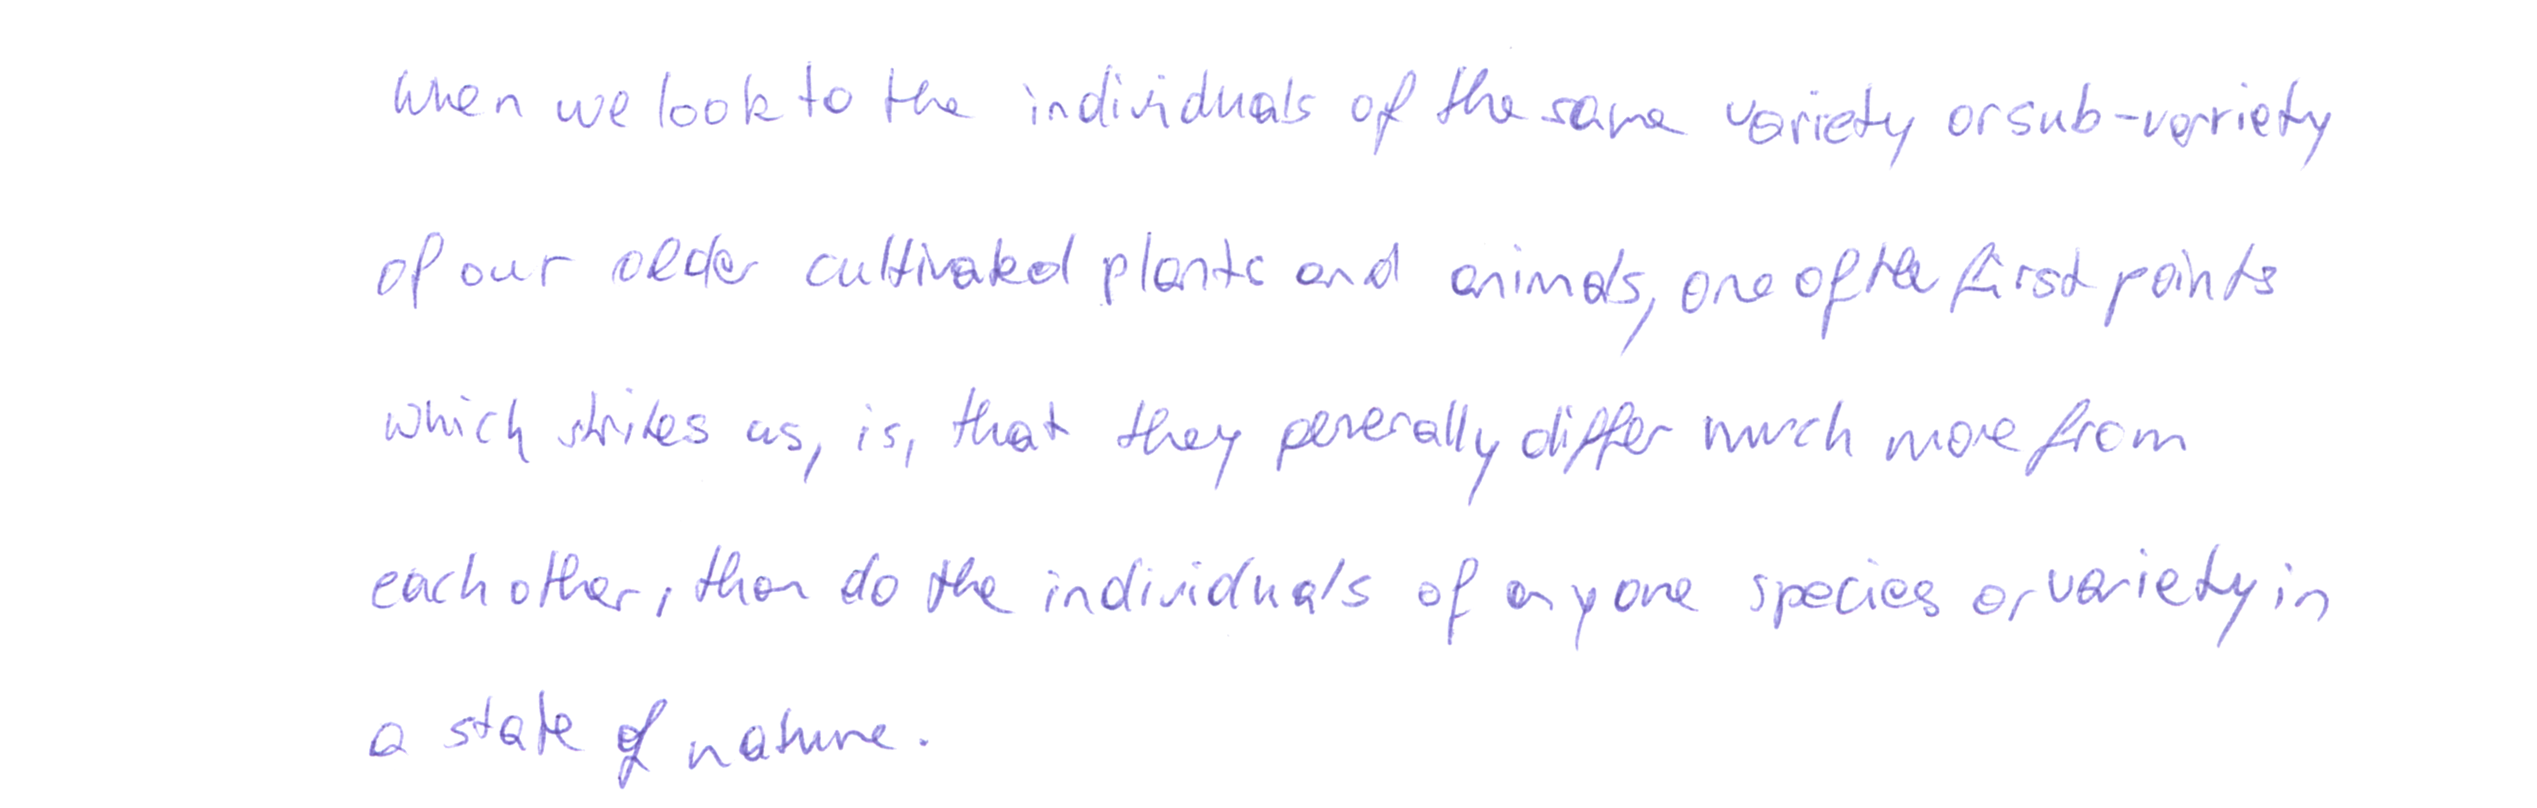 When we look to the individuals of the same variety or sub-variety
of our older cultivated plants and animals, one of the first points
which strikes us, is, that they generally differ much more from
each other, than do the individuals of any one species or variety in
a state of nature.